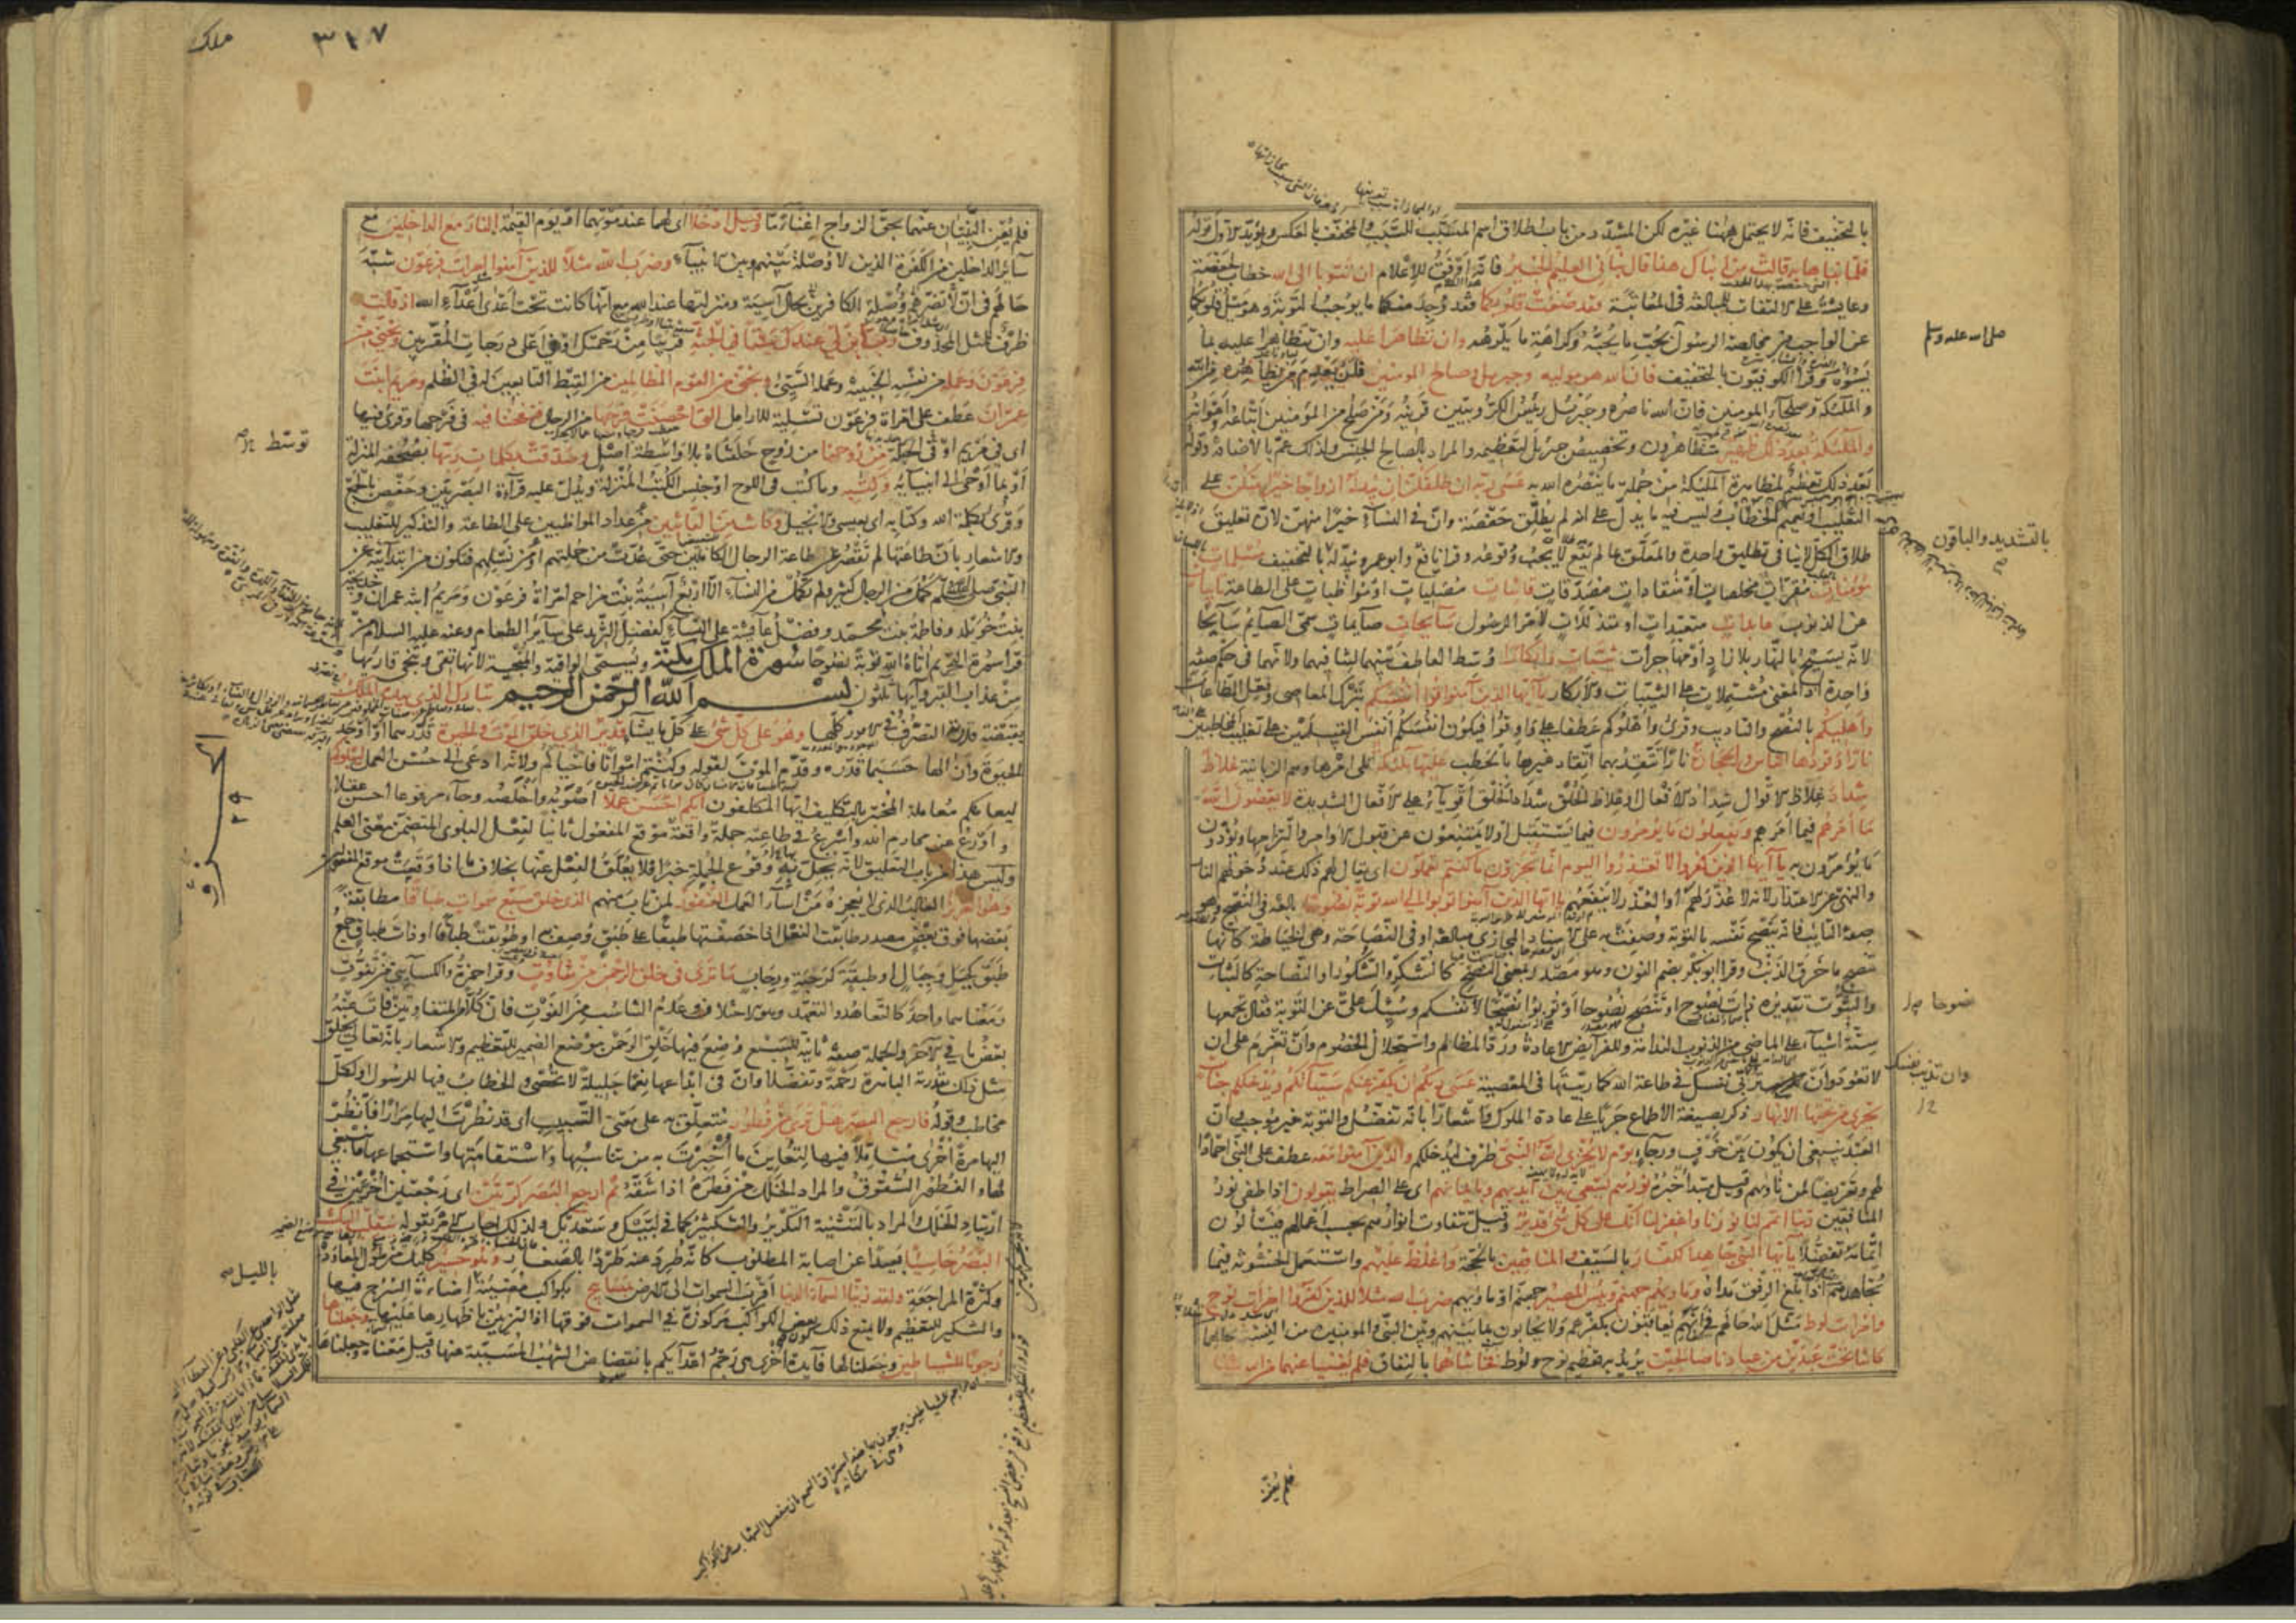 بالتخفيف فانه لا يحتمل ههنا غيره لكن المشدد من باب اطلاق اسم المسبب للسبب والمخفف بالعكس ويؤيد الاول قوله
فلما نبأها به قالت من انباك هذا قال نبأني العليم الخبير فانه اوفق للاعلام ان تتوبا الى الله خطاب لحفصة
وعايشة على الالتفات للمبالغة في المعاتبة فقد صغت قلوبكما فقد وجد منكما ما يوجب التوبة وهو ميل قلوبكما
عن الواجب من مخالصة الرسول بحب ما يحبه وكراهة ما يكرهه وان تظاهرا عليه وان تتظاهرا عليه بما
يسوءه وقرأ الكوفيون بالتخفيف فان الله هو موليه وجبريل وصالح المومنين فلن يعدم من يظاهره من الله
والملئكة وصلحاء المومنين فان الله ناصره وجبريل رئيس الكروبيين قرينه ومن صلح من المؤمنين اتباعه واعوانه
والملئكة بعد ذلك ظهير متظاهرون وتخصيص جبريل لتعظيمه والمراد بالصالح الجنس ولذلك عم بالاضافة وقوله
بعد ذلك تعظيم لمظاهرة الملئكة من جملة ما ينصره الله به عسى ربه ان طلقكن ان يبدله ازواجا خيرا منكن على
التغليب او تعميم الخطاب وليس فيه ما يدل على انه لم يطلق حفصة وان في النساء خيرا منهن لان تعليق
طلاق الكل لاينافي تطليق واحدة والمعلق بما لم يقع لا يجب وقوعه وقرا نافع وابوعمرو يبدله بالتخفيف مسلمات
مؤمنات مقرات مخلصات او منقادات مصدقات قانتات مصليات او مواظبات على الطاعة تايبات
عن الذنوب عابدات متعبدات او متذللات لامر الرسول سايحات صايمات سمى الصايم سايحا
لانه يسيح بالنهار بلا زاد او مهاجرات ثيبات وابكارا وسط العاطف بينهما لتنافيهما ولانهما في حكم صفة
واحدة اذ المعنى مشتملات على الثيبات والابكار يا ايها الذين آمنوا قوا انفسكم بترك المعاصي وفعل الطاعات
واهليكم بالنصح والتاديب وقرئ واهلوكم عطفا على واو قوا فيكون انفسكم انفس القبيلين على تغليب المخاطبين
نارا وقودها الناس والحجارة نارا تتقد بهما اتقاد غيرها بالحطب عليها ملئكة تلى امرها وهم الزبانية غلاظ
شداد غلاظ الاقوال شداد الافعال او غلاظ الخلق شداد الخلق اقوياء على الافعال الشديدة لا يعصون الله
ما امرهم فيما امرهم ويفعلون ما يؤمرون فيما يستقبل او لا يمتنعون عن قبول الاوامر والتزامها ويؤدون
ما يؤمرون به يا ايها الذين كفروا لا تعتذروا اليوم انما تجزون ما كنتم تعملون اى يقال لهم ذلك عند دخولهم النار
والنهي عن الاعتذار لانه لا عذر لهم او العذر لا ينفعهم يا ايها الذين آمنوا توبوا الى الله توبة نصوحا بالغة في النصح وهو
صفة التايب فانه ينصح نفسه بالتوبة وصفت به على الاسناد المجازي مبالغة او في النصاحة وهي الخياطة كانها
تنصح ما خرق الذنب وقرا ابوبكر بضم النون وهو مصدر بمعنى النصح كالشكر والشكور او النصاحة كالثبات
والثبوت تقديره ذات نصوح او تنصح نصوحا او توبوا نصحا لانفسكم وسئل علي عن التوبة فقال تجمعها
ستة اشياء على الماضي من الذنوب الندامة وللفرايض الاعادة ورد المظالم واستحلال الخصوم وان تعزم على ان
لا تعود وان تربى نفسك في طاعة الله كما ربيتها في المعصية عسى ربكم ان يكفر عنكم سيئاتكم ويدخلكم جنات
تجرى من تحتها الانهار ذكر بصيغة الاطماع جريا على عادة الملوك واشعارا بانه تفضل والتوبة غير موجب وان
العبد ينبغي ان يكون بين خوف ورجاء يوم لا يخزى الله النبي ظرف ليدخلكم والذين آمنوا معه عطف على النبي احمادا
لهم وتعريضا لمن ناواهم وقيل مبتدا خبره نورهم يسعى بين ايديهم وبايمانهم اى على الصراط يقولون اذا طفئ نور
المنافقين ربنا اتمم لنا نورنا واغفر لنا انك على كل شئ قدير وقيل تتفاوت انوارهم بحسب اعمالهم فيسألون
اتمامه تفضلا يا ايها النبي جاهد الكفار بالسيف والمنافقين بالحجة واغلظ عليهم واستعمل الخشونة فيما
تجاهدهم اذا بلغ الرفق مداه وماويهم جهنم وبئس المصير جهنم او ماويهم ضرب الله مثلا للذين كفروا امرات نوح
وامرات لوط مثل الله حالهم في انهم يعاقبون بكفرهم ولا يحابون بما بينهم وبين النبي والمومنين من النسبة بحالهما
كانتا تحت عبدين من عبادنا صالحين يريد به تعظيم نوح ولوط فخانتاهما بالنفاق فلم يغنيا عنهما من الله شيئا
صلى الله عليه وسلم
بالتشديد والباقون
نصوحا
وان تذيب نفسك
فلم يغن
ملك
٣١٧
فلم يغن النبيان عنهما بحق الزواج اغناء ما وقيل ادخلا اى لهما عند موتهما او يوم القيمة النار مع الداخلين مع
سائر الداخلين من الكفرة الذين لا وصلة بينهم وبين الانبياء وضرب الله مثلا للذين آمنوا امرات فرعون شبه
حالهم في ان لا تضرهم وصلة الكافرين بحال آسية ومنزلتها عند الله مع انها كانت تحت اعدى اعداء الله اذ قالت
ظرف للمثل المحذوف رب ابن لي عندك بيتا في الجنة قريبا من رحمتك او في اعلى درجات المقربين ونجني من
فرعون وعمله من نفسه الخبيثة وعمله السيئ ونجني من القوم الظالمين من القبط التابعين له في الظلم ومريم ابنت
عمران عطف على امراة فرعون تسلية للارامل التى احصنت فرجها من الرجال فنفخنا فيه في فرجها وقرئ فيها
اى في مريم او في الجملة من روحنا من روح خلقناه بلا واسطة اصل وصدقت بكلمات ربها بصحفه المنزلة
او بما اوحى الى انبيائه وكتبه وما كتب في اللوح او جنس الكتب المنزلة ويدل عليه قراءة البصريين وحفص بالجمع
وقرئ بكلمة الله وكتابه اى بعيسى والانجيل وكانت من القانتين من عداد المواظبين على الطاعة والتذكير للتغليب
والاشعار بان طاعتها لم تقصر عن طاعة الرجال الكاملين حتى عدت من جملتهم او من نسلهم فتكون من ابتدائية عن
النبي صلى الله عليه وسلم كمل من الرجال كثير ولم تكمل من النساء الا اربع آسية بنت مزاحم امراة فرعون ومريم ابنة عمران وخديجة
بنت خويلد وفاطمة بنت محمد وفضل عايشة على النساء كفضل الثريد على سائر الطعام وعنه عليه السلام من
قرا سورة التحريم اتاه الله توبة نصوحا سورة الملك مكية ويسمى الواقية والمنجية لانها تقى وتنجى قاريها
من عذاب القبر وآيها ثلثون بسم الله الرحمن الرحيم تبارك الذى بيده الملك
بقبضة قدرته التصرف في الامور كلها وهو على كل شئ على كل ما يشاء قدير الذى خلق الموت والحيوة قدرهما او اوجد
الحيوة وازالها حسبما قدره وقدم الموت لقوله وكنتم امواتا فاحياكم ولانه ادعى الى حسن العمل ليبلوكم
ليعاملكم معاملة المختبر بالتكليف ايها المكلفون ايكم احسن عملا اصوبه واخلصه وجاء مرفوعا احسن عقلا
واورع عن محارم الله واسرع في طاعته جملة واقعة موقع المفعول ثانيا لفعل البلوى المتضمن معنى العلم
وليس هذا من باب التعليق لانه يخل به وقوع الجملة خبرا فلا يعلق الفعل عنها بخلاف ما اذا وقعت موقع المفعولين
وهو العزيز الغالب الذى لا يعجزه من اساء العمل الغفور لمن تاب منهم الذى خلق سبع سموات طباقا مطابقة
بعضها فوق بعض مصدر طابقت النعل اذا خصفتها طبقا على طبق وصف به او طوبقت طباقا او ذات طباق جمع
طبق كجبل وجبال او طبقة كرحبة ورحاب ما ترى في خلق الرحمن من تفاوت وقرا حمزة والكسايي من تفوت
ومعناهما واحد كالتعاهد والتعهد وهو الاختلاف وعدم التناسب من الفوت فان كلا من المتفاوتين فات عنه
بعض ما في الآخر والجملة صفة ثانية للسبع وضع فيها خلق الرحمن موضع الضمير للتعظيم والاشعار بانه تعالى يخلق
مثل ذلك بقدرته الباهرة رحمة وتفضلا وان في ابداعها نعما جليلة لا تحصى والخطاب فيها للرسول او لكل
مخاطب وقوله فارجع البصر هل ترى من فطور متعلق به على معنى التسبيب اى قد نظرت اليها مرارا فانظر
اليها مرة اخرى متاملا فيها لتعاين ما اخبرت به من تناسبها واستقامتها واستجماعها ما ينبغي
لها والفطور الشقوق والمراد الخلل من فطره اذا شقه ثم ارجع البصر كرتين اى رجعتين اخريين في
ارتياد الخلل والمراد بالتثنية التكرير والتكثير كما في لبيك وسعديك ولذلك اجاب الامر بقوله ينقلب اليك
البصر خاسئا بعيدا عن اصابة المطلوب كانه طرد عنه طردا بالصغار وهو حسير كليل من طول المعاودة
وكثرة المراجعة ولقد زينا السماء الدنيا اقرب السموات الى الارض بمصابيح بكواكب مضيئة اضاءة السرج فيها
والتنكير للتعظيم ولا يمنع ذلك كون بعض الكواكب مركوزة في السموات فوقها اذ التزيين باظهارها عليها وجعلناها
رجوما للشياطين وجعلنا لها فايدة اخرى هى رجم اعدائكم بانقضاض الشهب المسببة عنها وقيل معناه وجعلناها
توسط
٢٩
بالليل